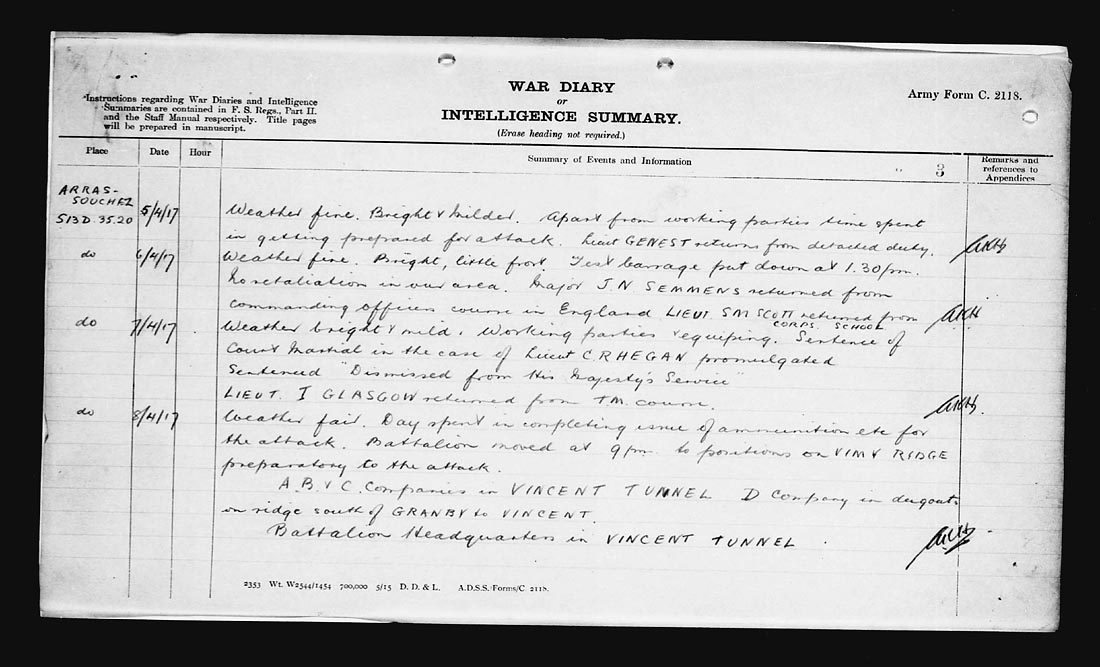 WAR DIARY
or
INTELLIGENCE SUMMARY.
(Erase heading not required.)
Army Form C. 2118.
Instructions regarding War Diaries and Intelligence
Summaries are contained in F. S. Regs., Part II.
and the Staff Manual respectively. Title pages
will be prepared in manuscript.
Place Date Hour Summary of Events and Information 3 Remarks and
references to
Appendices
ARRAS-
SOUCHEZ
S13D.35.20 5/4/17 Weather fine. Bright & Milder. Apart from working parties time spent
in getting prepared for attack. Lieut GENEST returns from detached duty.
do 6/4/17 Weather fine. Bright, little frost. Test barrage put down at 1.30pm.
No retaliation in our area. Major J.N. SEMMENS returned from
commanding officers course in England LIEUT. SM SCOTT returned from
CORPS. SCHOOL
do 7/4/17 Weather bright & mild. Working parties & equiping. Sentence of
Court Martial in the case of Lieut C.R HEGAN promulgated
Sentenced "Dismissed from His Majesty's Service"
LIEUT. I GLASGOW returned from TM. course.
do 8/4/17 Weather fair. Day spent in completing issue of ammunition etc for
the attack. Battalion moved at 9pm. to positions on VIMY RIDGE
preparatory to the attack.
A. B. & C. Companies in VINCENT TUNNEL D Company in dugouts
on ridge south of GRANBY to VINCENT.
Battalion Headquarters in VINCENT TUNNEL
2353 Wt. W2544/1454 700,000 5/15 D. D. & L. A.D.S.S./Forms/C. 2118.